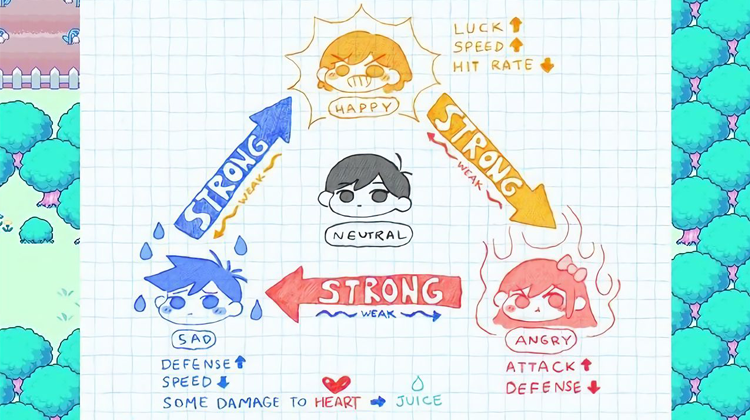 LUCK
SPEED
HIT RATE
HAPPY
STRONG
WEAK
STRONG
WEAK
NEUTRAL
STRONG
WEAK
SAD
DEFENSE
SPEED
SOME DAMAGE TO HEART JUICE
ANGRY
ATTACK
DEFENSE